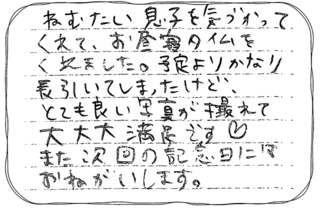 ねむたい息子を気づかって
くれて、お昼寝タイムを
くれました。予定よりかなり
長引いてしまったけど、
とても良い写真が撮れて
大大大満足です♡
また次回の記念日には
おねがいします。